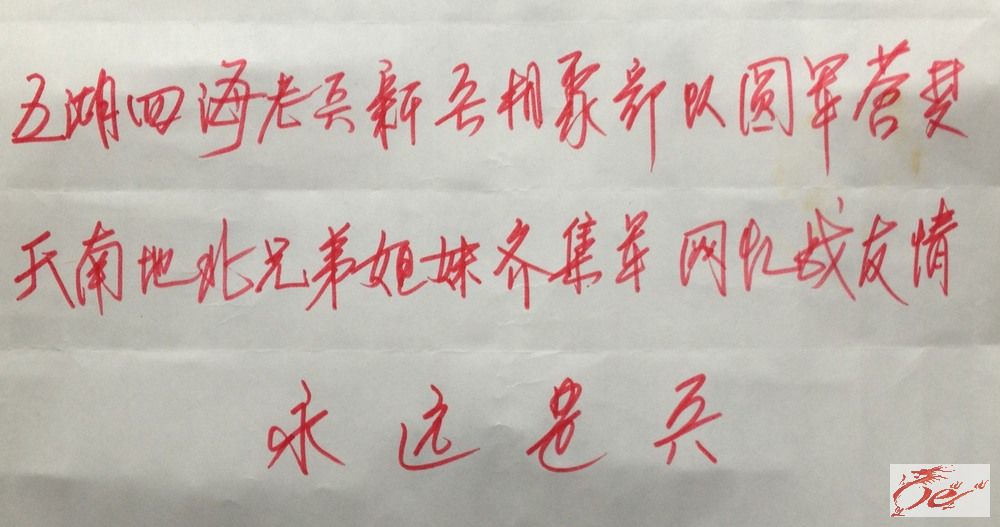 五湖四海老兵新兵相聚部队圆军营梦
天南地北兄弟姐妹齐集军网忆战友情
永远是兵